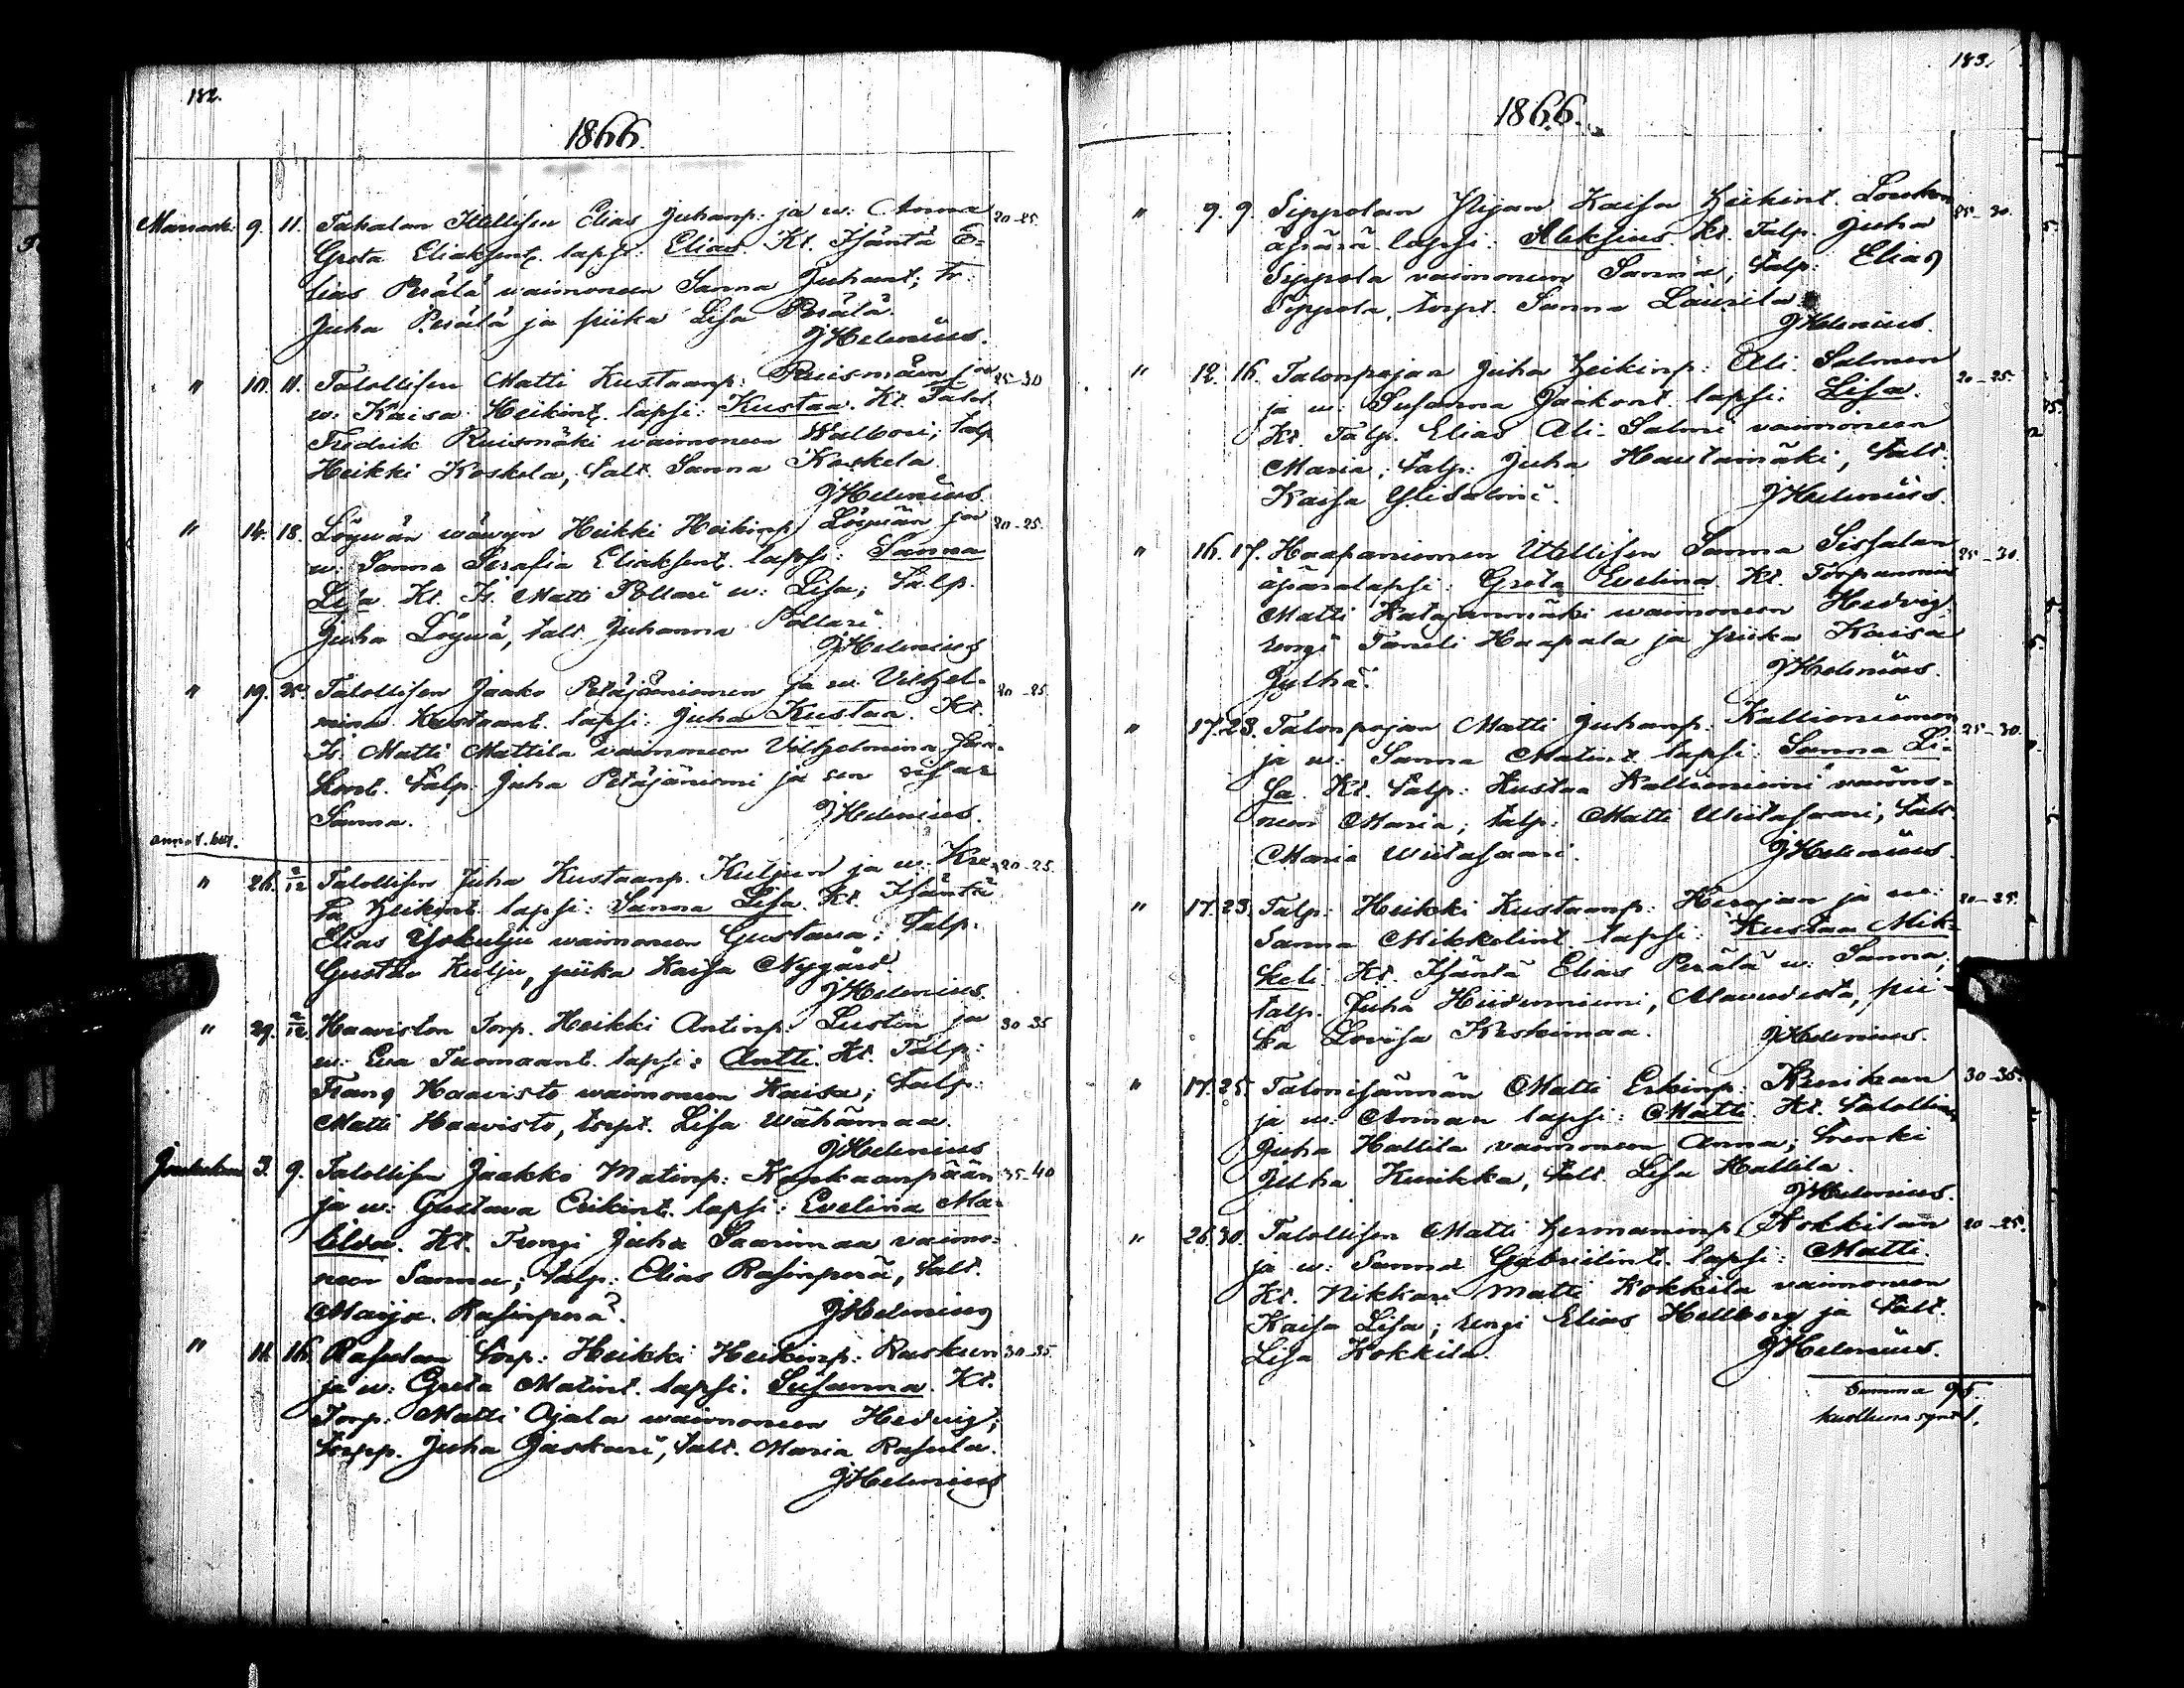 182.
1866.
Marrask. 9. 11. Takalan Itellisen Elias Juhanp: ja w: Anna 20-25.
Greta Eliaksent. lapsi: Elias. Kt. Isäntä E-
lias Perälä waimoneen Sanna Juhant; tr:
Juha Perälä ja piika Lisa Perälä.
JHelenius.
" 10. 11. Talollisen Matti Kustaanp: Ruismäen ja 25-30
w: Kaisa Heikint. lapsi: Kustaa. Kt. Talol.
Fredrik Ruismäki waimoneen Walbori; talp
Heikki Koskela, talt. Sanna Koskela.
JHelenius.
" 14. 18. Löywän wäwyn Heikki Heikinp. Löywän ja 20-25.
w: Sanna Serafia Eliaksent. lapsi: Sanna
Lisa. Kt. Is. Matti Pollari w: Lisa; talp.
Juha Löywä, talt. Juhanna Pollari.
JHelenius
" 19. 25. Talollisen Jaako Petäjäniemen ja w. Vilhel-20-25.
mina Kustaant. lapsi: Juha Kustaa. Kt.
Is. Matti Mattila waimoneen Vilhelmina
talp. Juha Petäjäniemi ja sen sisar
Sanna. JHelenius.
" 26. 2/12 Talollisen Juha Kustaanp. Kuljun ja w: Kre-20-25.
ta Heikint. lapsi: Sanna Lisa. Kt. Isäntä
Elias Yskulju waimoneen Gustava; talp.
Gustav Kulju, piika Kaisa Nygård.
JHelenius.
" 29. 2/12 Haaviston Torp. Heikki Antinp: Lustin ja 30-35
w: Eva Tuomaant. lapsi: Antti. Kt. Talp:
Frans Haavisto waimoneen Kaisa; talp.
Matti Haavisto, torpt. Lisa Wähämaa.
JHelenius
Jouluk. 3. 9. Talollisen Jaakko Matinp: Kankaanpään 35-40
ja w: Gustava Erikint. lapsi: Evelina Ma-
tilda. Kt. Trengi Juha Saarimaa vaimo-
neen Sanna; talp: Elias Rasinperä, talt.
Maija Rasinperä. JHelenius
" 11. 16. Rasulan torp: Heikki Heikinp: Ruskun 30-35
ja w: Greta Matint. lapsi: Susanna. Kt.
Torp: Matti Ojala waimoneen Hedvig;
torpp. Juha Jaskari, talt. Maria Rasula.
JHelenius
183.
1866.
" 9. 9. Sippolan Piijan Kaisa Heikint. 25-30.
äpärä lapsi: Aleksius. Kt. Talp. Juha
Sippola vaimoneen Sanna; talp: Elias
Sippola, torpt. Sanna Laurila.
JHelenius.
" 12. 16. Talonpojan Juha Heikinp: Ali-Salmen 20-25.
ja w: Susanna Jaakont. lapsi: Lisa.
Kt. Talp. Elias Ali-Salmi vaimoneen
Maria; talp: Juha Hautamäki, talt:
Kaisa Ylisalmi. JHelenius.
" 16. 17. Haapaniemen Itellisen Sanna Sissalan 25-30.
äpäralapsi: Greta Evelina. Kt. Torpanmies
Matti Katajanmäki waimoneen Hedvig,
rengi Taneli Haapala ja piika Kaisa
Jylhä. JHelenius.
" 17. 23. Talonpojan Matti Juhanp: Kallioniemen 25-30.
ja w: Sanna Matint. lapsi: Sanna Li-
sa. Kt. talp: Kustaa Kallioniemi vaimo-
neen Maria; talp: Matti Wiitasaari, talt.
Maria Wiitasaari. JHelenius.
" 17. 23. Talp: Heikki Kustaanp: Herojan ja w: 20-25.
Sanna Mikkelint. lapsi: Kustaa Mik-
keli. Kt. Isäntä Elias Perälä w: Sanna;
talp. Juha Hiidenniemi, Alavudesta, pii-
ka Lovisa Keskimaa. JHelenius.
" 17. 25. Talonisännän Matti Erkinp: Kurikan 30-35.
ja w: Annan lapsi: Matti. Kt. talollinen
Juha Hallila vaimoneen Anna; trenki
Juha Kurikka, talt. Lisa Hallila.
JHelenius.
" 26. 30. Talollisen Matti Hermaninp. Kokkilan 20-25.
ja w: Sanna Gabrielint. lapsi: Matti.
Kt. Nikkari Matti Kokkila vaimoneen
Kaisa Lisa; rengi Elias Hellberg ja talt.
Lisa Kokkila. JHelenius.
Summa 95.